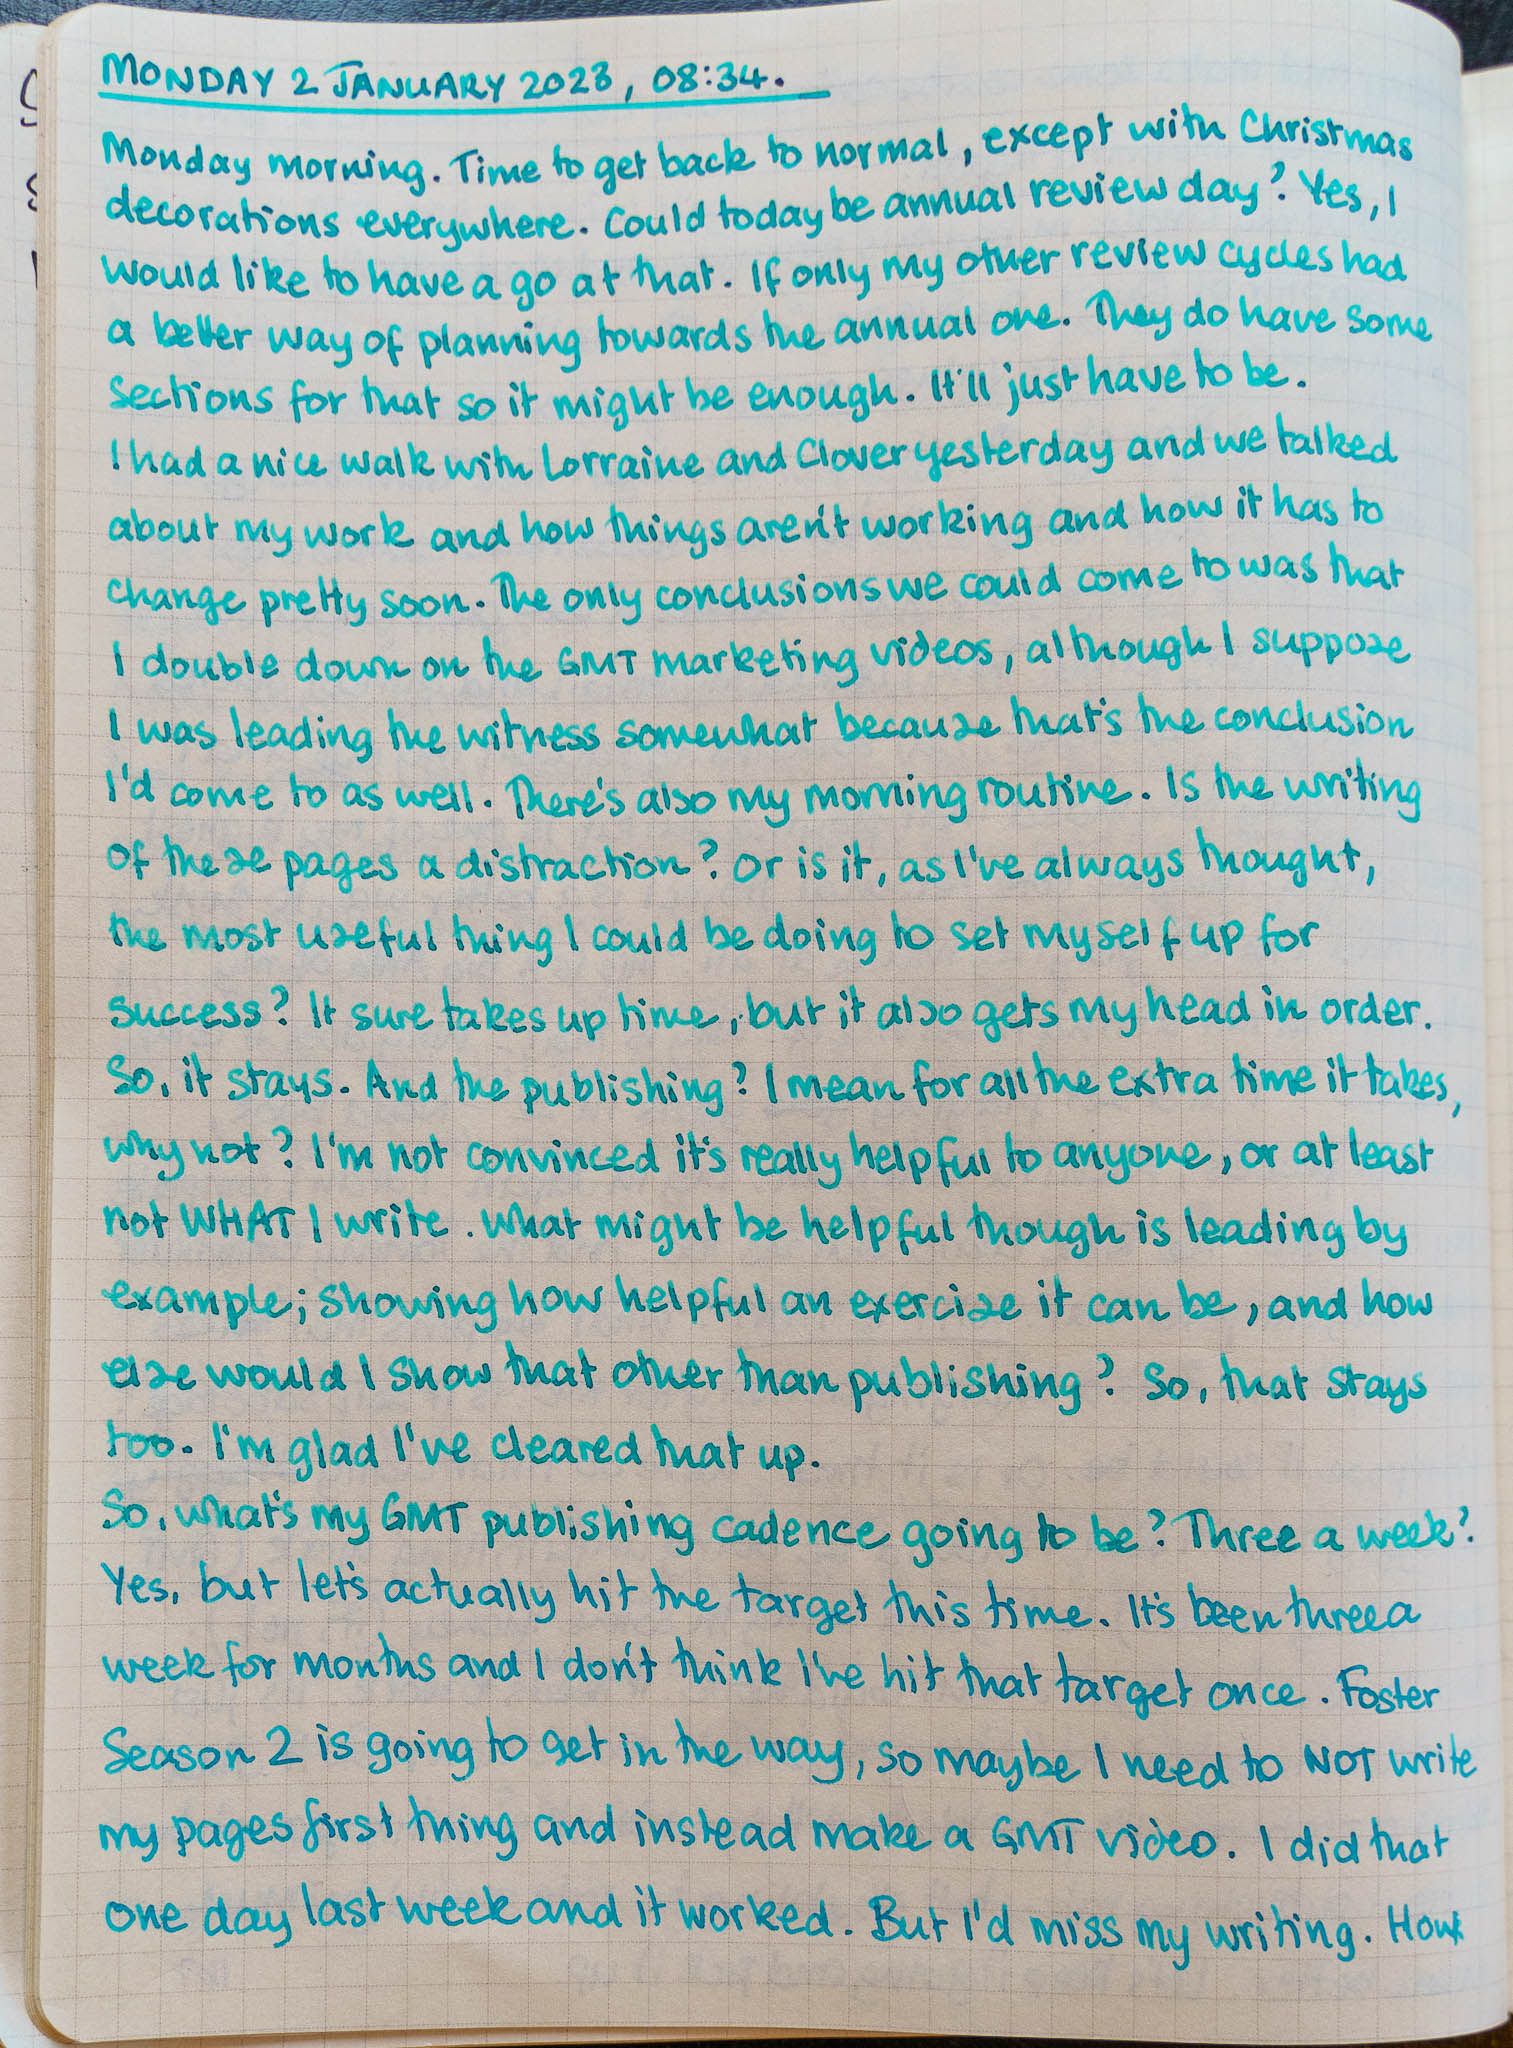 MONDAY 2 JANUARY 2023, 08:34.
Monday morning. Time to get back to normal, except with Christmas
decorations everywhere. Could today be annual review day? Yes, I
would like to have a go at that. If only my other review cycles had
a better way of planning towards the annual one. They do have some
sections for that so it might be enough. It'll just have to be.
I had a nice walk with Lorraine and Clover yesterday and we talked
about my work and how things aren't working and how it has to
change pretty soon. The only conclusions we could come to was that
I double down on the GMT marketing videos, although I suppose
I was leading the witness somewhat because that's the conclusion
I'd come to as well. There's also my morning routine. Is the writing
of these pages a distraction? Or is it, as I've always thought,
the most useful thing I could be doing to set myself up for
success? It sure takes up time, but it also gets my head in order.
So, it stays. And the publishing? I mean for all the extra time it takes,
why not? I'm not convinced it's really helpful to anyone, or at least
not WHAT I write. What might be helpful though is leading by
example; showing how helpful an exercise it can be, and how
else would I show that other than publishing? So, that stays
too. I'm glad I've cleared that up.
So, what's my GMT publishing cadence going to be? Three a week?
Yes, but let's actually hit the target this time. It's been three a
week for months and I don't think I've hit that target once. Foster
Season 2 is going to get in the way, so maybe I need to NOT write
my pages first thing and instead make a GMT video. I did that
one day last week and it worked. But I'd miss my writing. How